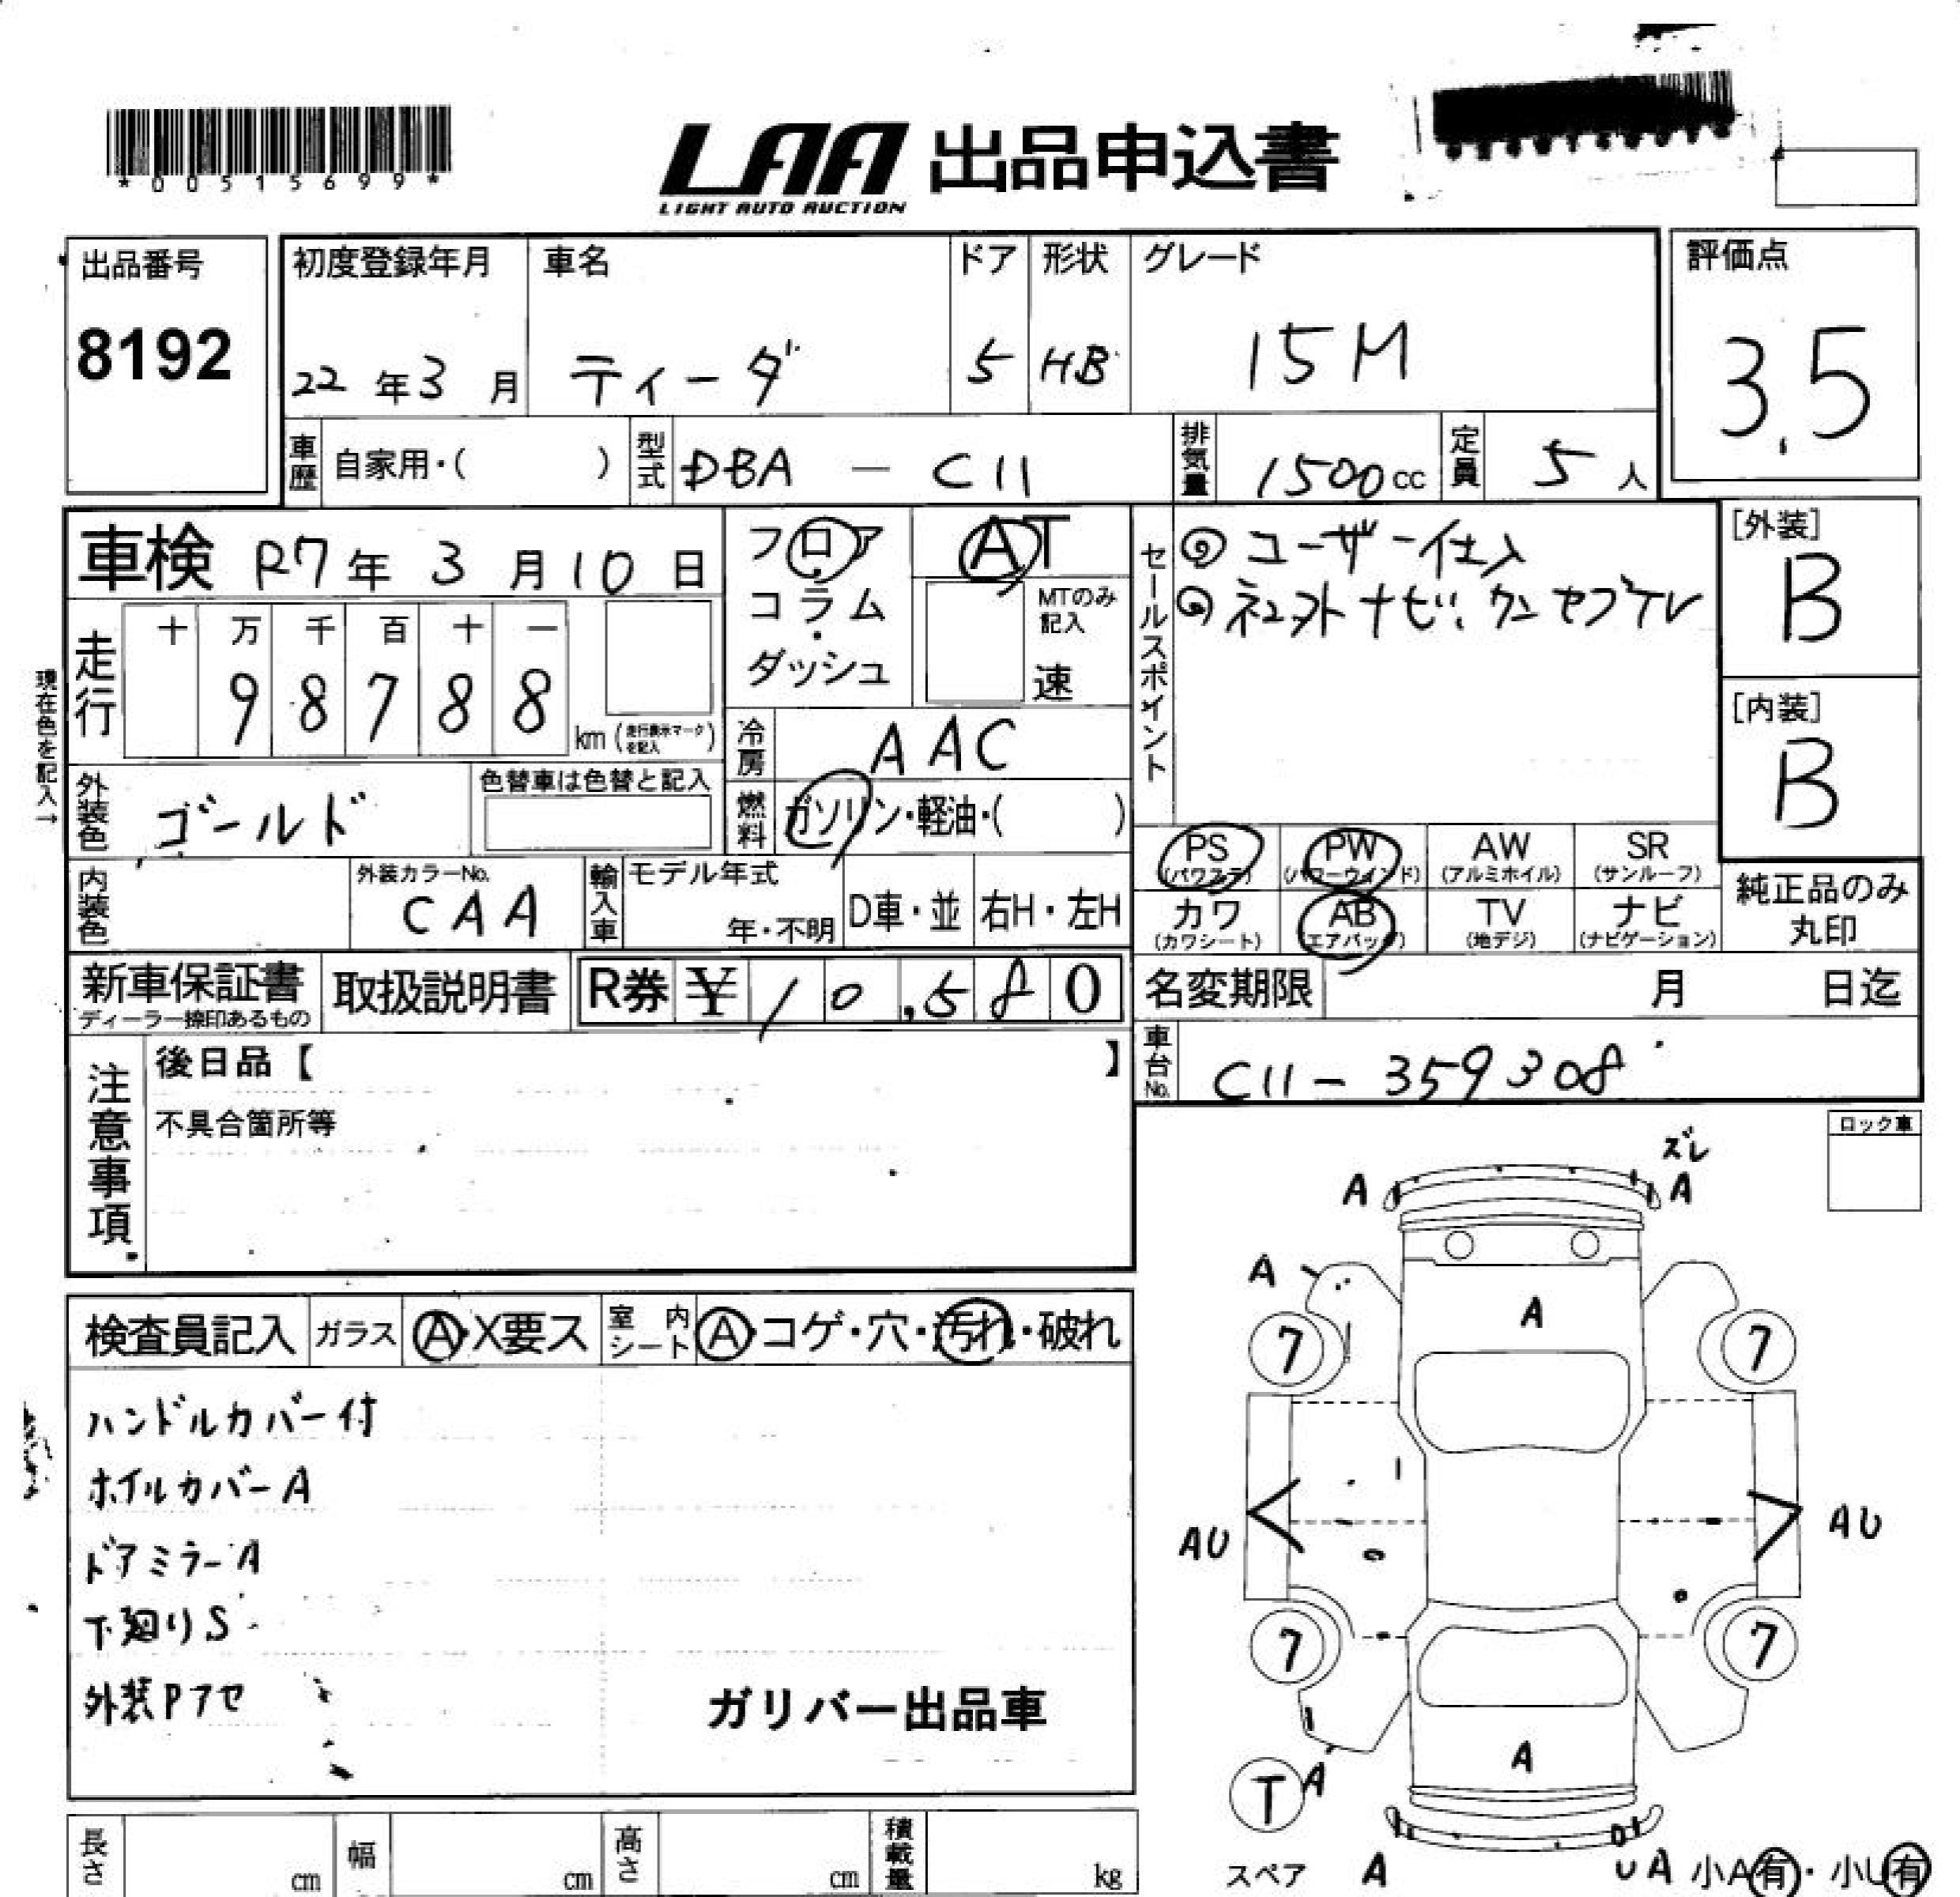 *00515699*
LAA 出品申込書
LIGHT AUTO AUCTION
出品番号
8192
初度登録年月
22 年 3 月
車名
ティーダ
ドア
5
形状
HB
グレード
15M
評価点
3.5
車歴 自家用・( )
型式 DBA － C11
排気量 1500 cc
定員 5 人
車検 R7 年 3 月 10 日
フロア
コラム
・
ダッシュ
AT
MTのみ
記入
速
セールスポイント
◎ ユーザー仕入
[外装]
B
[内装]
B
現在色を記入→
走行
十 万 千 百 十 一
9 8 7 8 8
km (走行表示マークを記入)
冷房 AAC
外装色 ゴールド
色替車は色替と記入
燃料 ガソリン・軽油・( )
PS
(パワステ)
PW
(パワーウインド)
AW
(アルミホイル)
SR
(サンルーフ)
カワ
(カワシート)
AB
(エアバッグ)
TV
(地デジ)
ナビ
(ナビゲーション)
純正品のみ
丸印
内装色
外装カラーNo.
CAA
輸入車
モデル年式
年・不明
D車・並
右H・左H
新車保証書
ディーラー捺印あるもの
取扱説明書
R券 ¥ 10,580
名変期限 月 日迄
車台No. C11 － 359308
注意事項
後日品【 】
不具合箇所等
ロック車
ズレ
A A
A
A
7 7
AU AU
7 7
A
T A
スペア
A
U A
小A有・小U有
検査員記入
ガラス A・X要ス
室内シート A・コゲ・穴・汚れ・破れ
ハンドルカバー付
ホイルカバーA
ドアミラーA
下廻りS
外装Pアセ
ガリバー出品車
長さ cm
幅 cm
高さ cm
積載量 kg